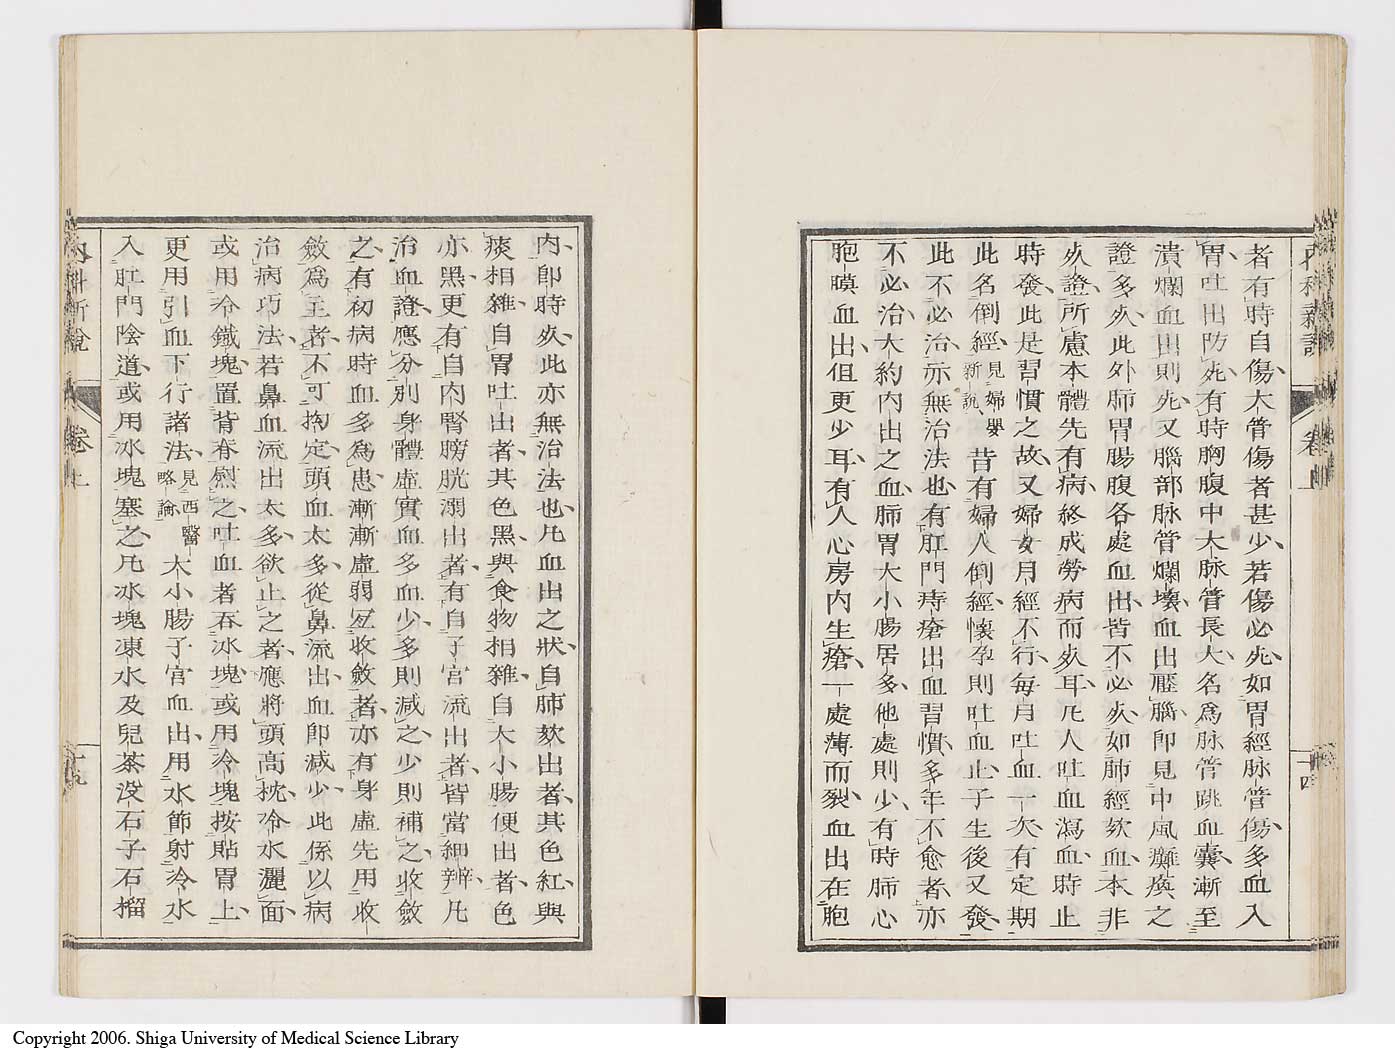 者有時自傷大管傷者甚少若傷必死如胃經脉管傷多血入
胃吐出防死有時胸腹中大脉管長大名爲脉管跳血囊漸至
潰爛血出則死又腦部脉管爛壞血出壓腦即見中風癱瘓之
證多死此外肺胃腸腹各處血出皆不必死如肺經欬血本非
死證所慮本體先有病終成勞病而死耳凡人吐血瀉血時止
時發此是習慣之故又婦女月經不行每月吐血一次有定期
此名倒經見婦嬰新說昔有婦人倒經懷孕則吐血止子生後又發
此不必治亦無治法也有肛門痔瘡出血習慣多年不愈者亦
不必治大約內出之血肺胃大小腸居多他處則少有時肺心
胞膜血出但更少耳有人心房內生瘡一處薄而裂血出在胞
內科新說
卷上
內即時死此亦無治法也凡血出之狀自肺欬出者其色紅與
痰相雜自胃吐出者其色黑與食物相雜自大小腸便出者色
亦黑更有自內腎膀胱溺出者有自子宮流出者皆當細辨凡
治血證應分別身體虛實血多血少多則減之少則補之收斂
之有初病時血多爲患漸漸虛弱宜收斂者亦有身虛先用收
斂爲主者不可拘定頭血太多從鼻流出血即減少此係以病
治病巧法若鼻血流出太多欲止之者應將頭高枕冷水灑面
或用冷鐵塊置背脊慰之吐血者吞冰塊或用冷塊按貼胃上
更用引血下行諸法見西醫略論大小腸子宮血出用水節射冷水
入肛門陰道或用冰塊塞之凡冰塊凍水及兒茶没石子石榴
內科新說
卷上
十九
Copyright 2006. Shiga University of Medical Science Library